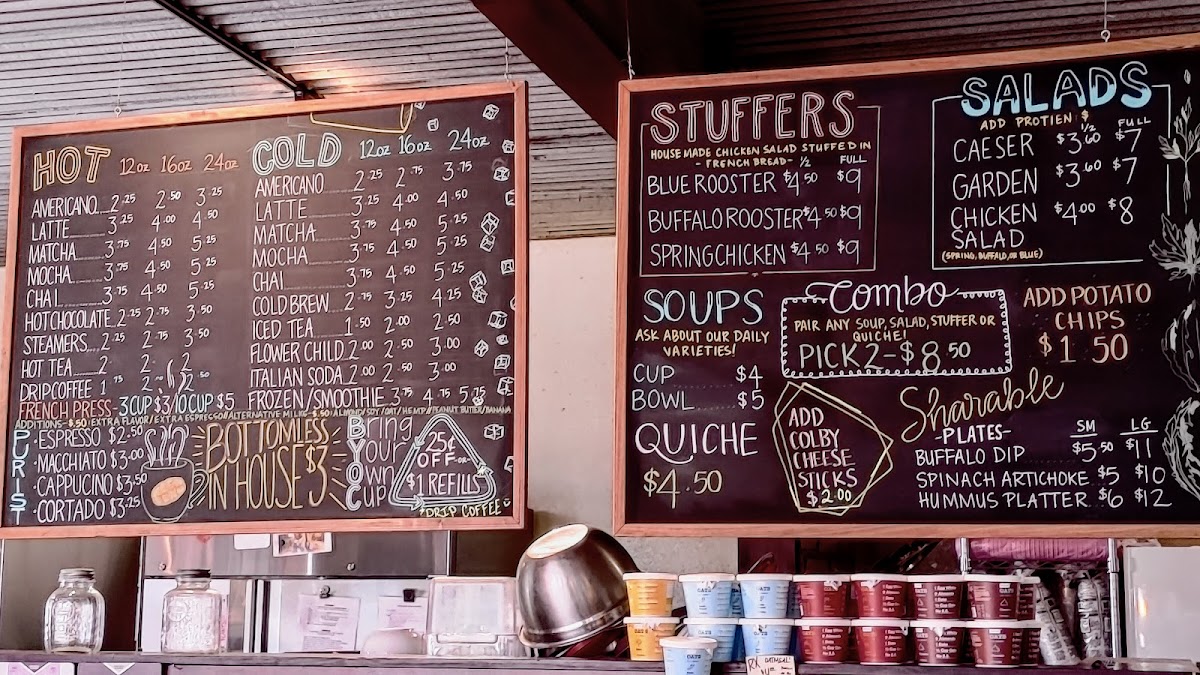 HOT 12oz 16oz 24oz
AMERICANO 2.25 2.50 3.25
LATTE 3.25 4.00 4.50
MATCHA 3.75 4.50 5.25
MOCHA 3.75 4.50 5.25
CHAI 3.75 4.50 5.25
HOT CHOCOLATE 2.25 2.75 3.50
STEAMERS 2.25 2.75 3.50
HOT TEA 2. 2. 2.
DRIP COFFEE 1.75 2. 2.50
FRENCH PRESS- 3 CUP $3/10 CUP $5
COLD 12oz 16oz 24oz
AMERICANO 2.25 2.75 3.75
LATTE 3.25 4.00 4.50
MATCHA 3.75 4.50 5.25
MOCHA 3.75 4.50 5.25
CHAI 3.75 4.50 5.25
COLD BREW 2.75 3.25 4.25
ICED TEA 1.50 2.00 2.50
FLOWER CHILD 2.00 2.50 3.00
ITALIAN SODA 2.00 2.50 3.00
FROZEN/SMOOTHIE 3.75 4.50 5.25
ADDITIONS-$.50: EXTRA FLAVOR/EXTRA ESPRESSO//ALTERNATIVE MILK-$.50: ALMOND/SOY/OAT/HEMP//PEANUT BUTTER/BANANA
PURIST
·ESPRESSO $2.50
·MACCHIATO $3.00
·CAPPUCINO $3.50
·CORTADO $3.25
BOTTOMLESS
IN HOUSE $3
Bring
Your
Own
Cup
25¢
OFF -OR-
$1 REFILLS
*DRIP COFFEE
STUFFERS
HOUSE MADE CHICKEN SALAD STUFFED IN
- FRENCH BREAD- ½ FULL
BLUE ROOSTER $4.50 $9
BUFFALO ROOSTER $4.50 $9
SPRING CHICKEN $4.50 $9
SALADS
ADD PROTIEN $
½ FULL
CAESER $3.60 $7
GARDEN $3.60 $7
CHICKEN $4.00 $8
SALAD
(SPRING, BUFFALO, OR BLUE)
SOUPS
ASK ABOUT OUR DAILY
VARIETIES!
CUP $4
BOWL $5
QUICHE
$4.50
Combo
PAIR ANY SOUP, SALAD, STUFFER OR
QUICHE!
PICK 2-$8.50
ADD POTATO
CHIPS
$1.50
ADD
COLBY
CHEESE
STICKS
$2.00
Sharable
-PLATES- SM LG
BUFFALO DIP $5.50 $11
SPINACH ARTICHOKE $5 $10
HUMMUS PLATTER $6 $12
OATS
OATS
OATS
OATMEAL